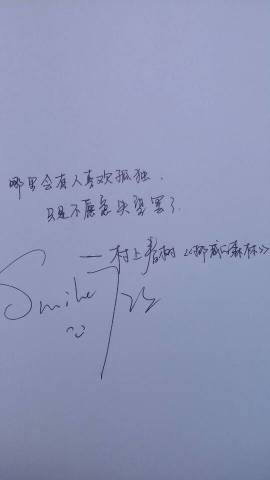 哪里会有人喜欢孤独，
只是不愿意失望罢了.
—村上春树《挪威的森林》
Smile